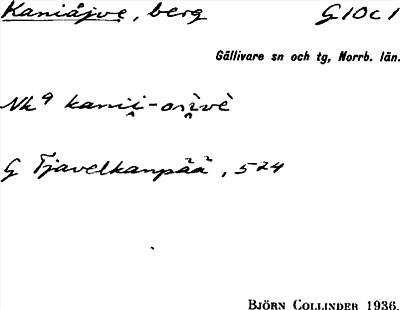 Kaniåjve, berg G10c1
Gällivare sn och tg, Norrb. län.
Nk 9
G Tjavelkanpää, 524
BJÖRN COLLINDER 1936.